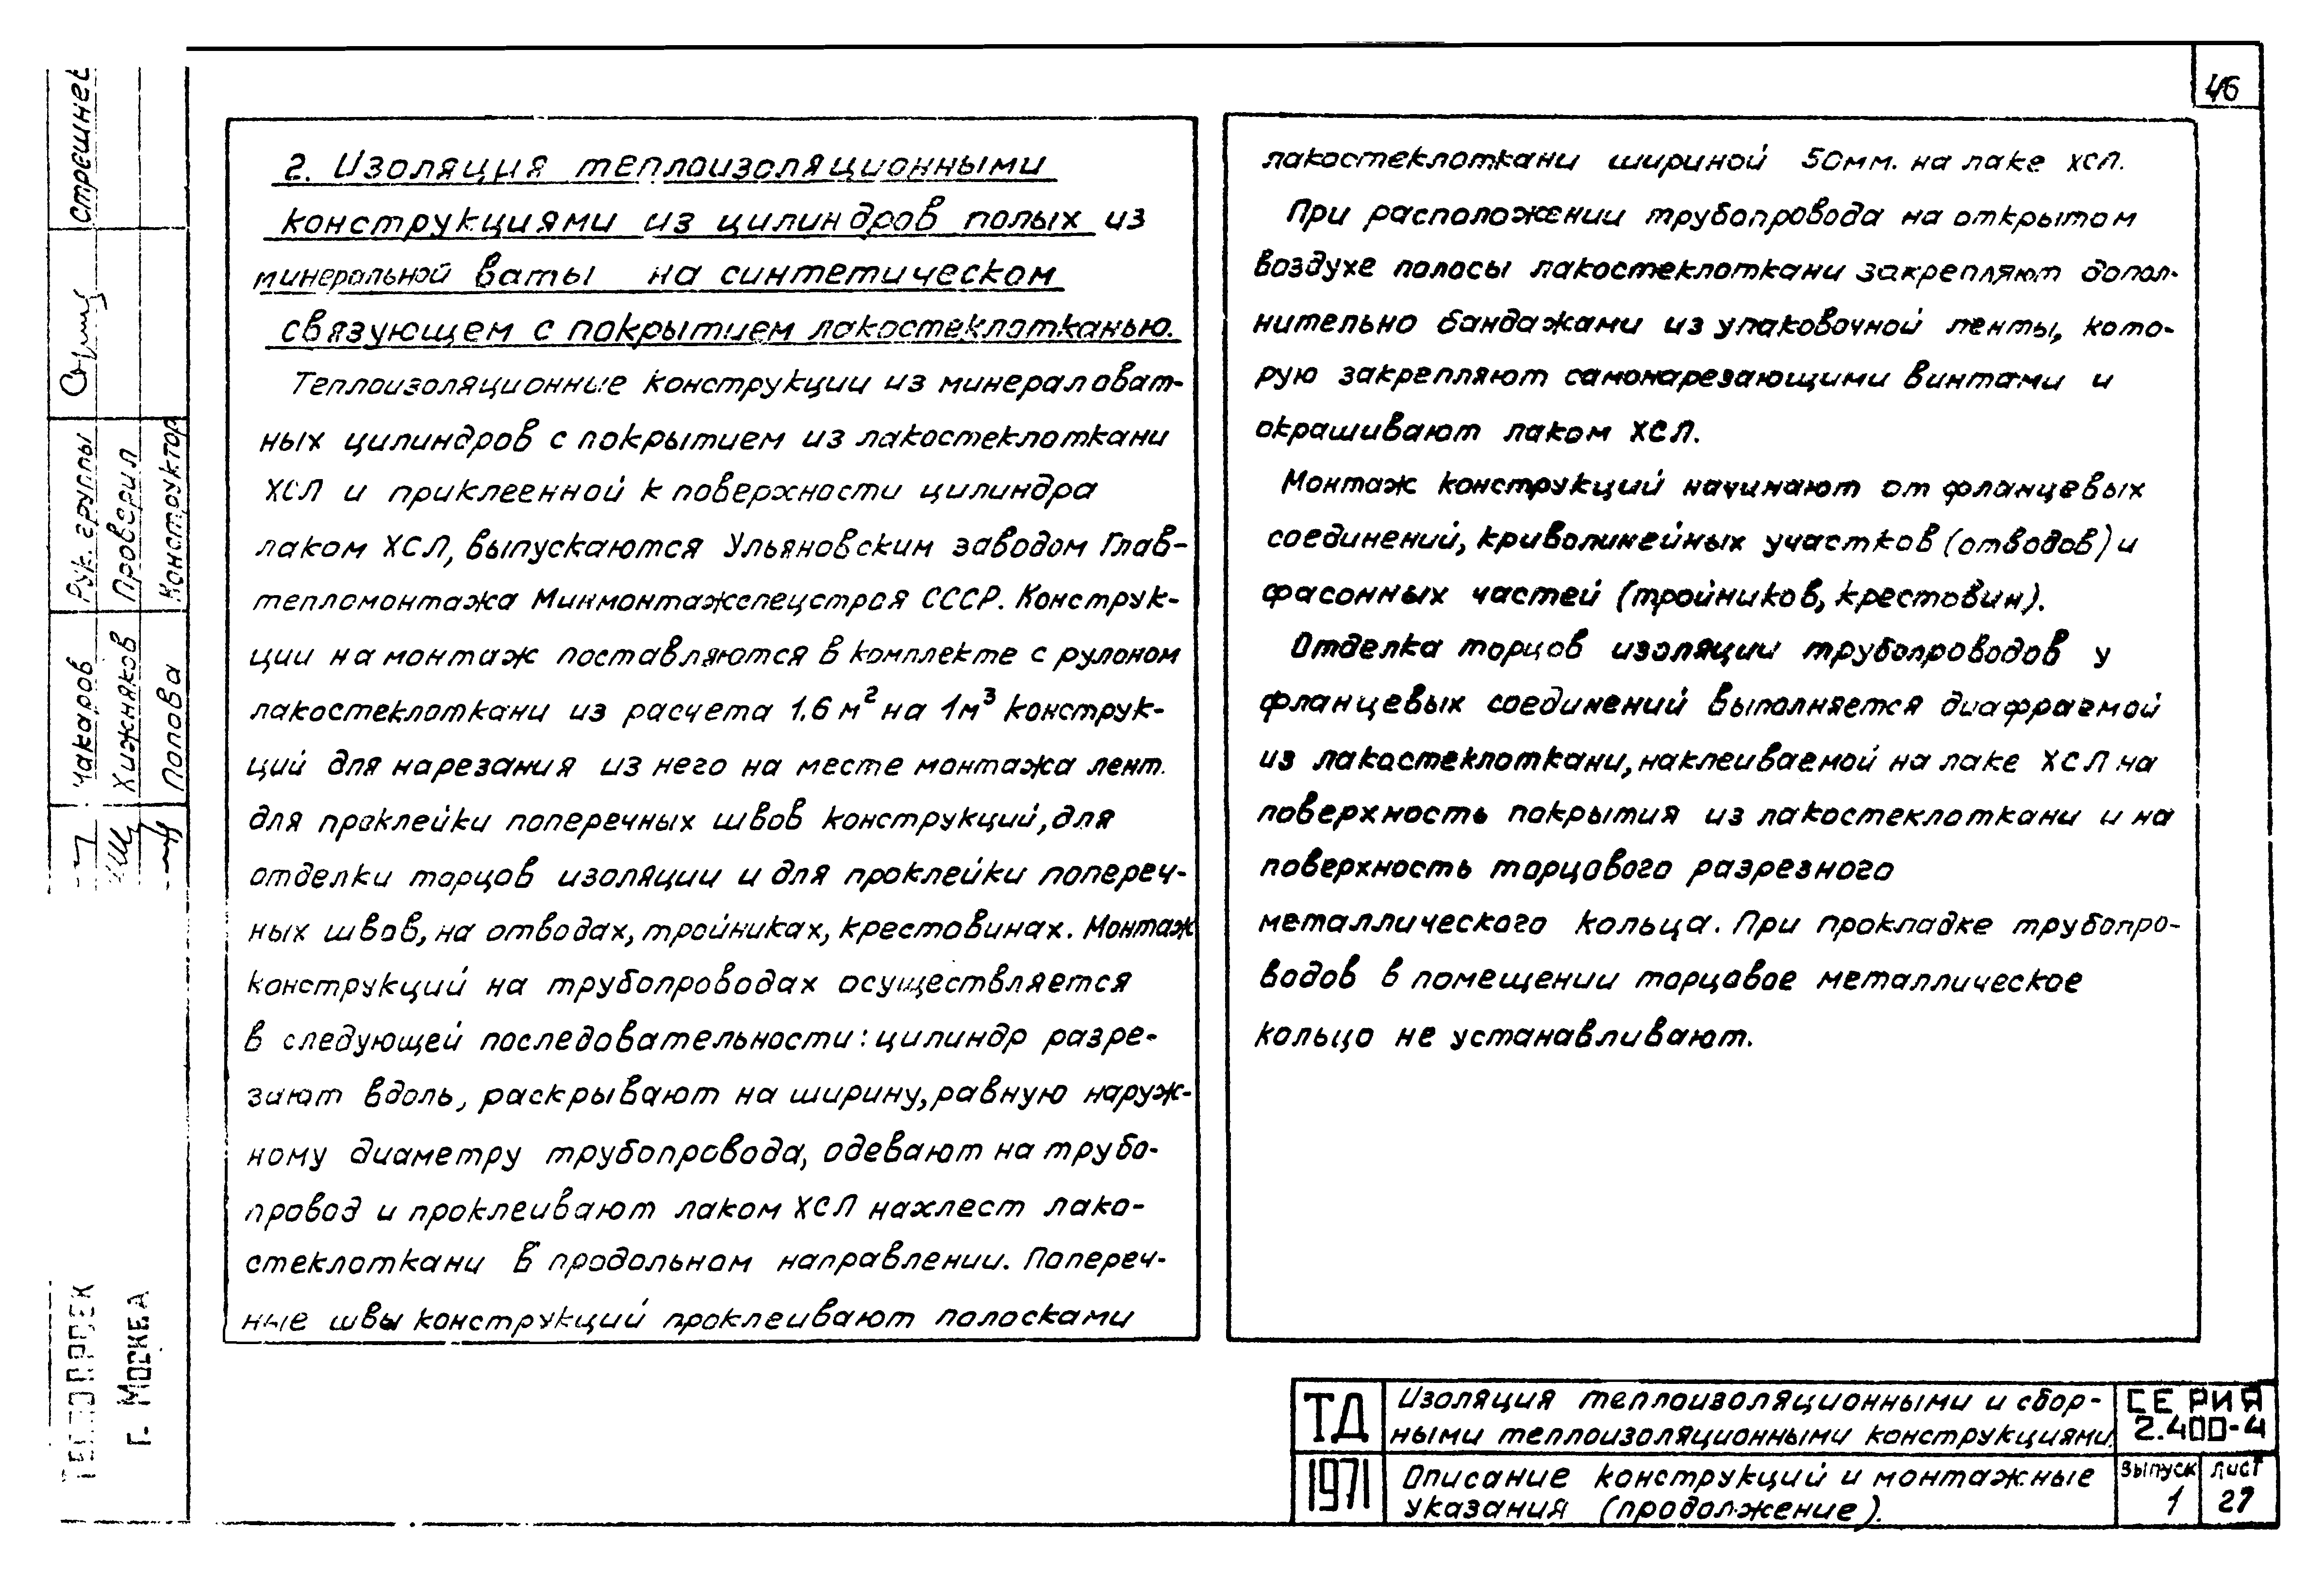 46
2. Изоляция теплоизоляционными
конструкциями из цилиндров полых из
минеральной ваты на синтетическом
связующем с покрытием лакостеклотканью.
Теплоизоляционные конструкции из минераловат-
ных цилиндров с покрытием из лакостеклоткани
ХСЛ и приклеенной к поверхности цилиндра
лаком ХСЛ, выпускаются Ульяновским заводом Глав-
тепломонтажа Минмонтажспецстроя СССР. Конструк-
ции на монтаж поставляются в комплекте с рулоном
лакостеклоткани из расчета 1.6 м² на 1м³ конструк-
ций для нарезания из него на месте монтажа лент.
для проклейки поперечных швов конструкций, для
отделки торцов изоляции и для проклейки попереч-
ных швов, на отводах, тройниках, крестовинах. Монтаж
конструкций на трубопроводах осуществляется
в следующей последовательности: цилиндр разре-
зают вдоль, раскрывают на ширину, равную наруж-
ному диаметру трубопровода, одевают на трубо-
провод и проклеивают лаком ХСЛ нахлест лако-
стеклоткани в продольном направлении. Попереч-
ные швы конструкций проклеивают полосками
лакостеклоткани шириной 50мм. на лаке ХСЛ.
При расположении трубопровода на открытом
воздухе полосы лакостеклоткани закрепляют допол-
нительно бандажами из упаковочной ленты, кото-
рую закрепляют самонарезающими винтами и
окрашивают лаком ХСЛ.
Монтаж конструкций начинают от фланцевых
соединений, криволинейных участков (отводов) и
фасонных частей (тройников, крестовин).
Отделка торцов изоляции трубопроводов у
фланцевых соединений выполняется диафрагмой
из лакостеклоткани, наклеиваемой на лаке ХСЛ на
поверхность покрытия из лакостеклоткани и на
поверхность торцового разрезного
металлического кольца. При прокладке трубопро-
водов в помещении торцовое металлическое
кольцо не устанавливают.
Рук. группы
Проверил
Конструктор
Чакаров
Хижняков
Попова
г. Москва
ТД
1971
Изоляция теплоизоляционными и сбор-
ными теплоизоляционными конструкциями.
Описание конструкций и монтажные
указания (продолжение).
СЕРИЯ
2.400-4
Выпуск
1
лист
27